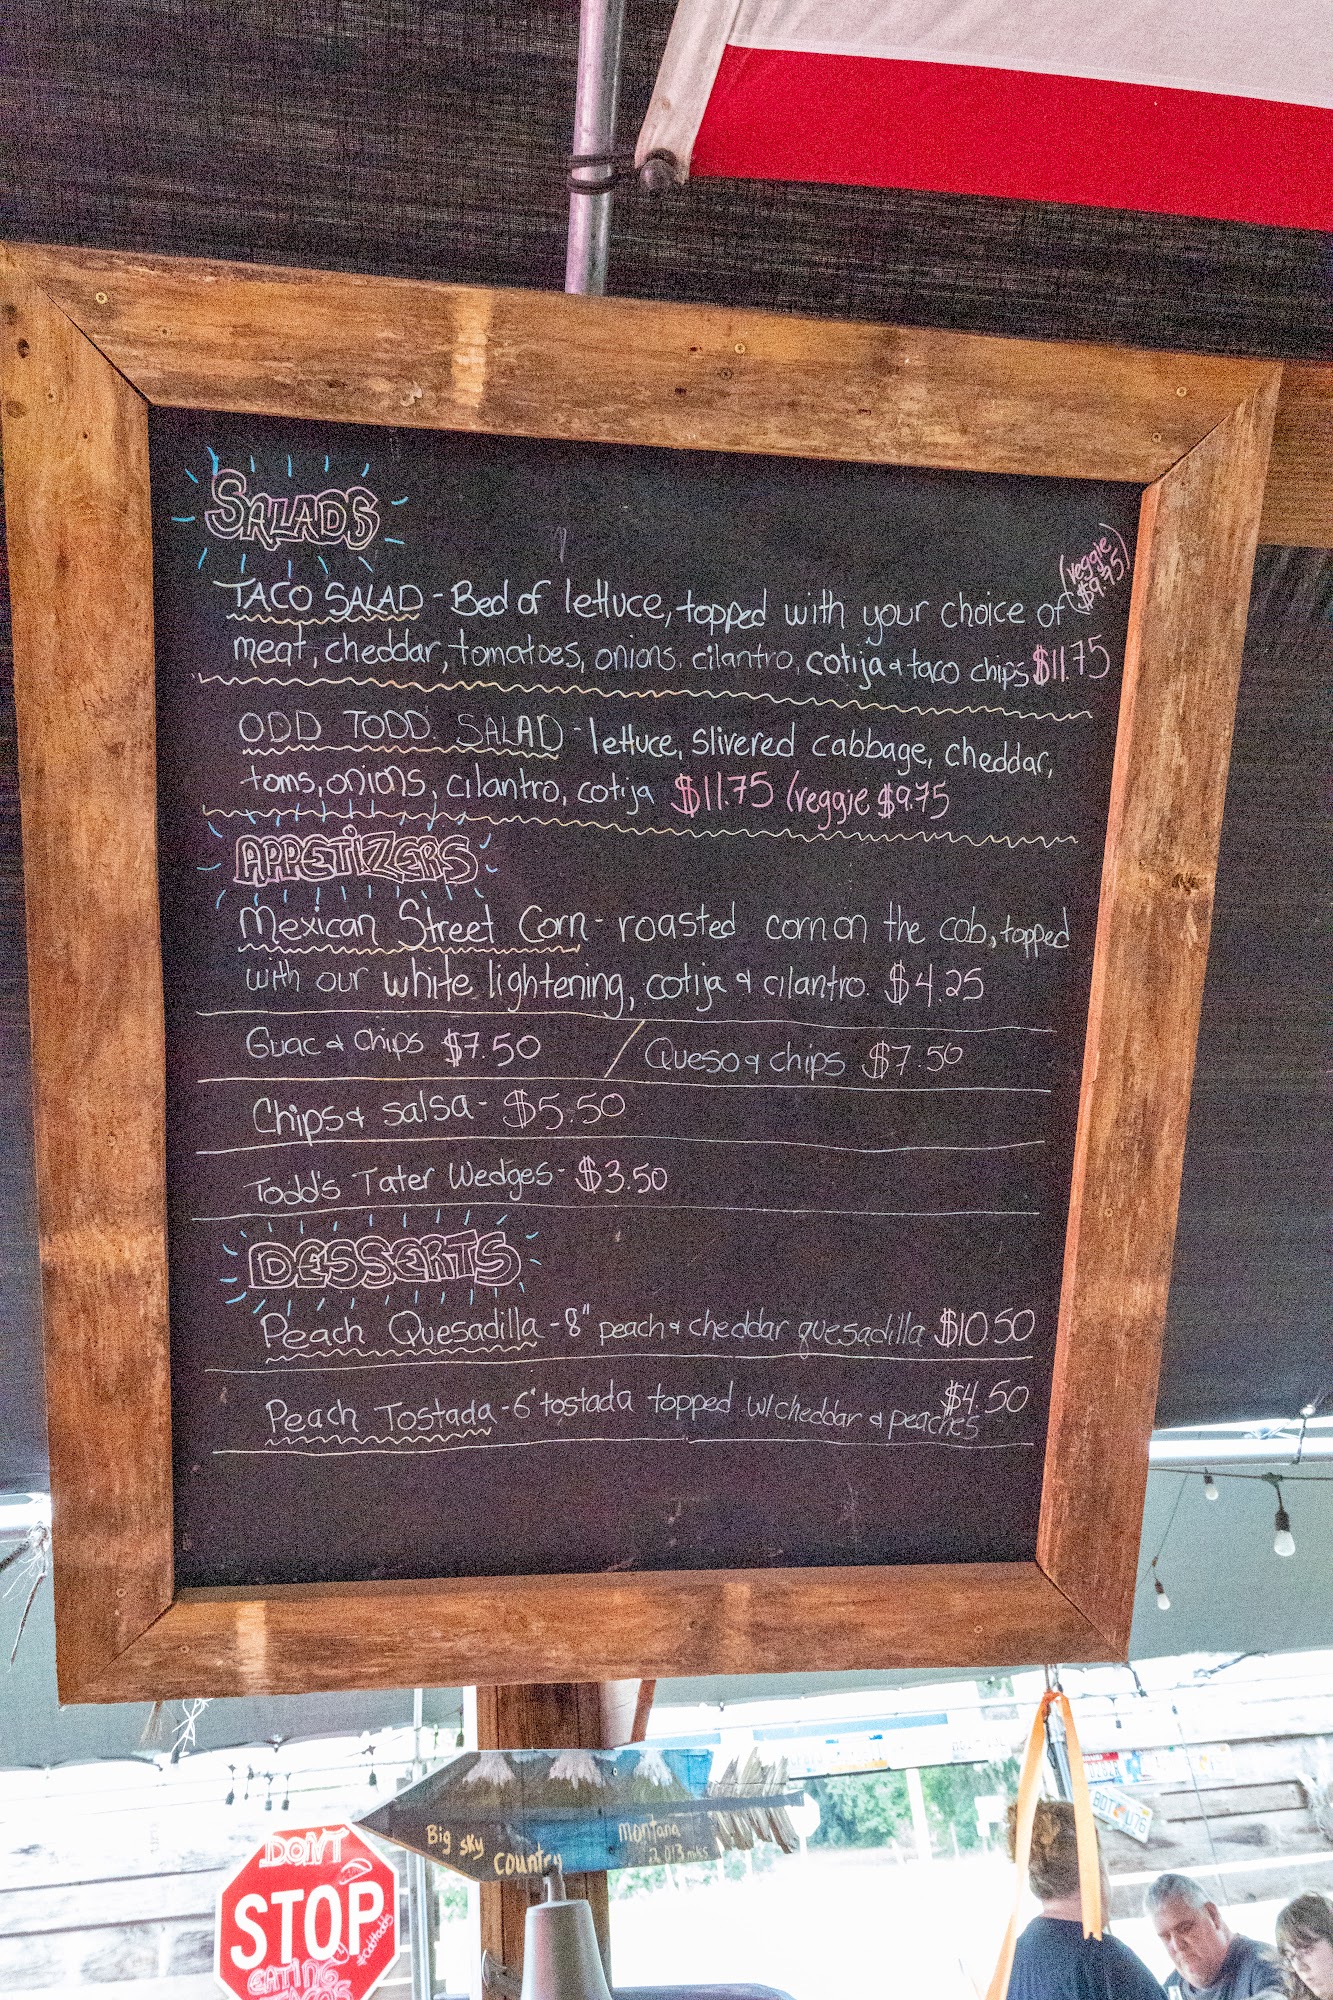 SALADS
(veggie
$9.75)
TACO SALAD - Bed of lettuce, topped with your choice of
meat, cheddar, tomatoes, onions, cilantro, cotija & taco chips $11.75
ODD TODD SALAD - lettuce, slivered cabbage, cheddar,
toms, onions, cilantro, cotija $11.75 (veggie $9.75
APPETIZERS
Mexican Street Corn - roasted corn on the cob, topped
with our white lightening, cotija & cilantro. $4.25
Guac & Chips $7.50 / Queso & chips $7.50
Chips & salsa - $5.50
Todd's Tater Wedges - $3.50
DESSERTS
Peach Quesadilla - 8" peach & cheddar quesadilla $10.50
Peach Tostada - 6" tostada topped w/ cheddar & peaches $4.50
Big sky
country
Montana
2,013 mls
DON'T
STOP
EATING
TACOS